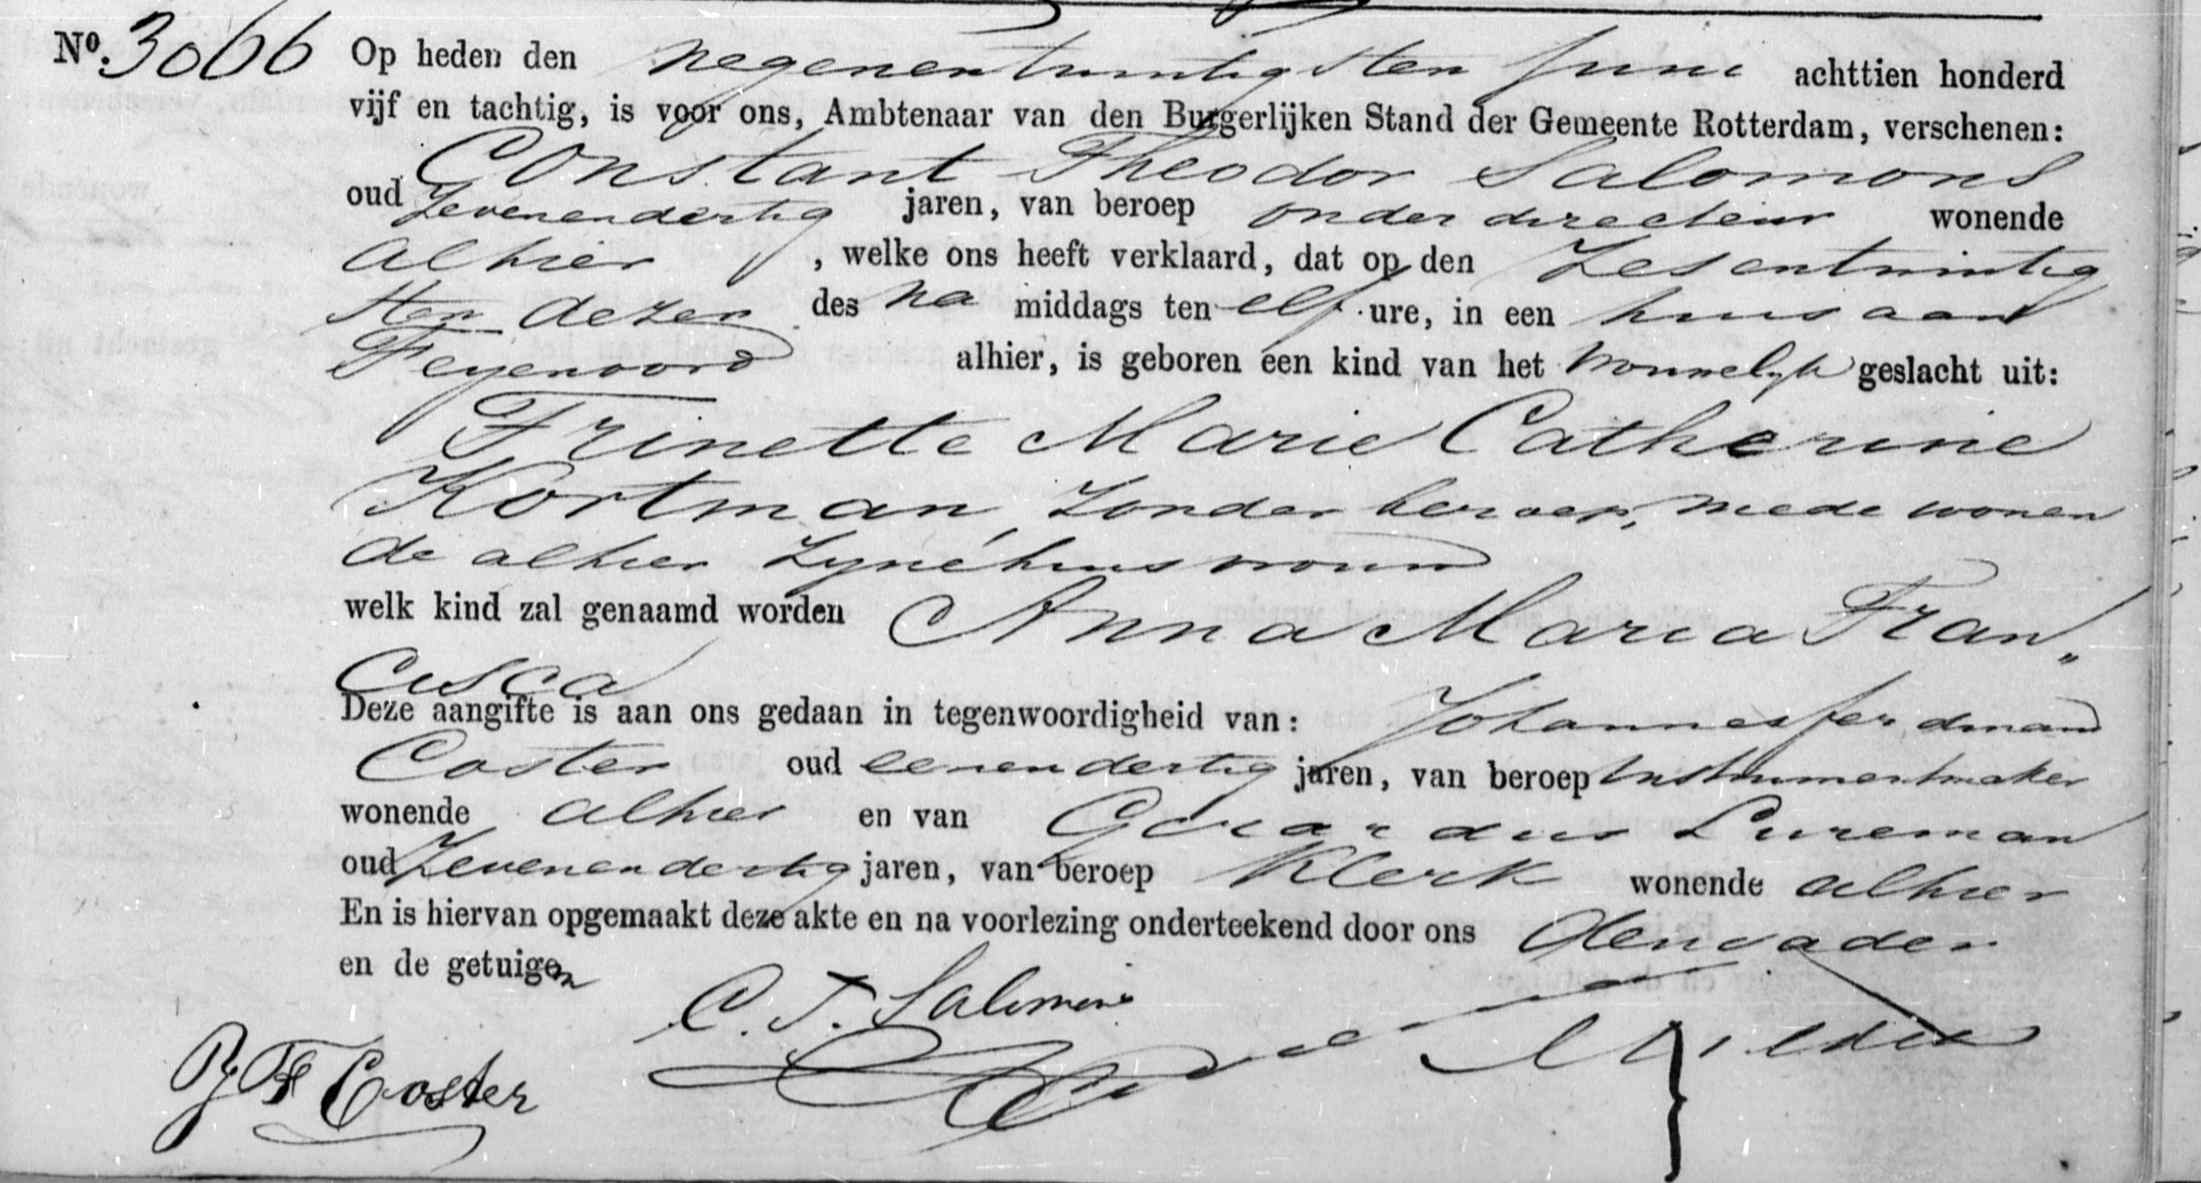 No. 3066 Op heden den negenentwintigsten Juni achttien honderd
vijf en tachtig, is voor ons, Ambtenaar van den Burgerlijken Stand der Gemeente Rotterdam, verschenen:
Constant Theodor Salomons
oud zevenendertig jaren, van beroep onderdirecteur wonende
alhier, welke ons heeft verklaard, dat op den zesentwintig
sten dezer des na middags ten elf ure, in een huis aan
Feyenoord alhier, is geboren een kind van het vrouwelijk geslacht uit:
Trinette Marie Catherine
Kortman, zonder beroep, mede wonen
de alhier zyne huisvrouw
welk kind zal genaamd worden Anna Maria Fran„
cisca
Deze aangifte is aan ons gedaan in tegenwoordigheid van: Johannes Ferdinand
Coster oud eenendertig jaren, van beroep Instrumentmaker
wonende alhier en van Gerardus Lureman
oud zevenendertig jaren, van beroep klerk wonende alhier
En is hiervan opgemaakt deze akte en na voorlezing onderteekend door ons den vader
en de getuigen
C. T. Salomons
J F Coster